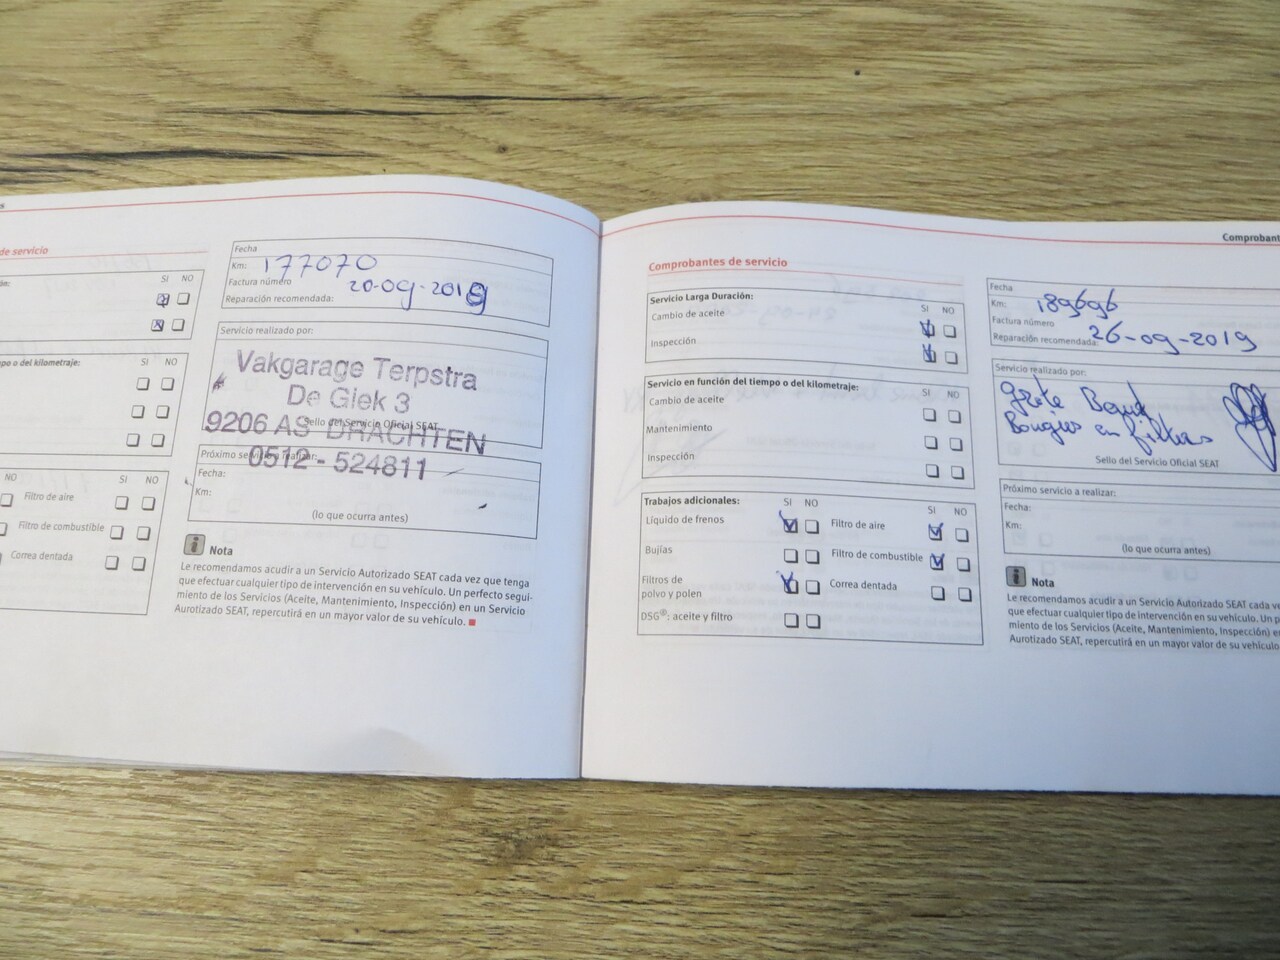 de servicio
SI NO
po o del kilometraje:
SI NO
NO
SI NO
Filtro de aire
Filtro de combustible
Correa dentada
Fecha
Km: 177070
Factura número
20-09-2019
Reparación recomendada:
Servicio realizado por:
Vakgarage Terpstra
De Giek 3
9206 AS DRACHTEN
Sello del Servicio Oficial SEAT
0512-524811
Próximo servicio a realizar:
Fecha:
Km:
(lo que ocurra antes)
i Nota
Le recomendamos acudir a un Servicio Autorizado SEAT cada vez que tenga
que efectuar cualquier tipo de intervención en su vehículo. Un perfecto segui-
miento de los Servicios (Aceite, Mantenimiento, Inspección) en un Servicio
Aurotizado SEAT, repercutirá en un mayor valor de su vehículo.
Comprobant
Comprobantes de servicio
Servicio Larga Duración:
SI NO
Cambio de aceite
Inspección
Servicio en función del tiempo o del kilometraje:
SI NO
Cambio de aceite
Mantenimiento
Inspección
Trabajos adicionales:
SI NO
SI NO
Líquido de frenos
Filtro de aire
Bujías
Filtro de combustible
Filtros de
polvo y polen
Correa dentada
DSG®: aceite y filtro
Fecha
Km: 189696
Factura número
26-09-2019
Reparación recomendada:
Servicio realizado por:
grote Beurt
Bougies en filters
Sello del Servicio Oficial SEAT
Próximo servicio a realizar:
Fecha:
Km:
(lo que ocurra antes)
i Nota
Le recomendamos acudir a un Servicio Autorizado SEAT cada ve
que efectuar cualquier tipo de intervención en su vehículo. Un p
miento de los Servicios (Aceite, Mantenimiento, Inspección) e
Aurotizado SEAT, repercutirá en un mayor valor de su vehículo